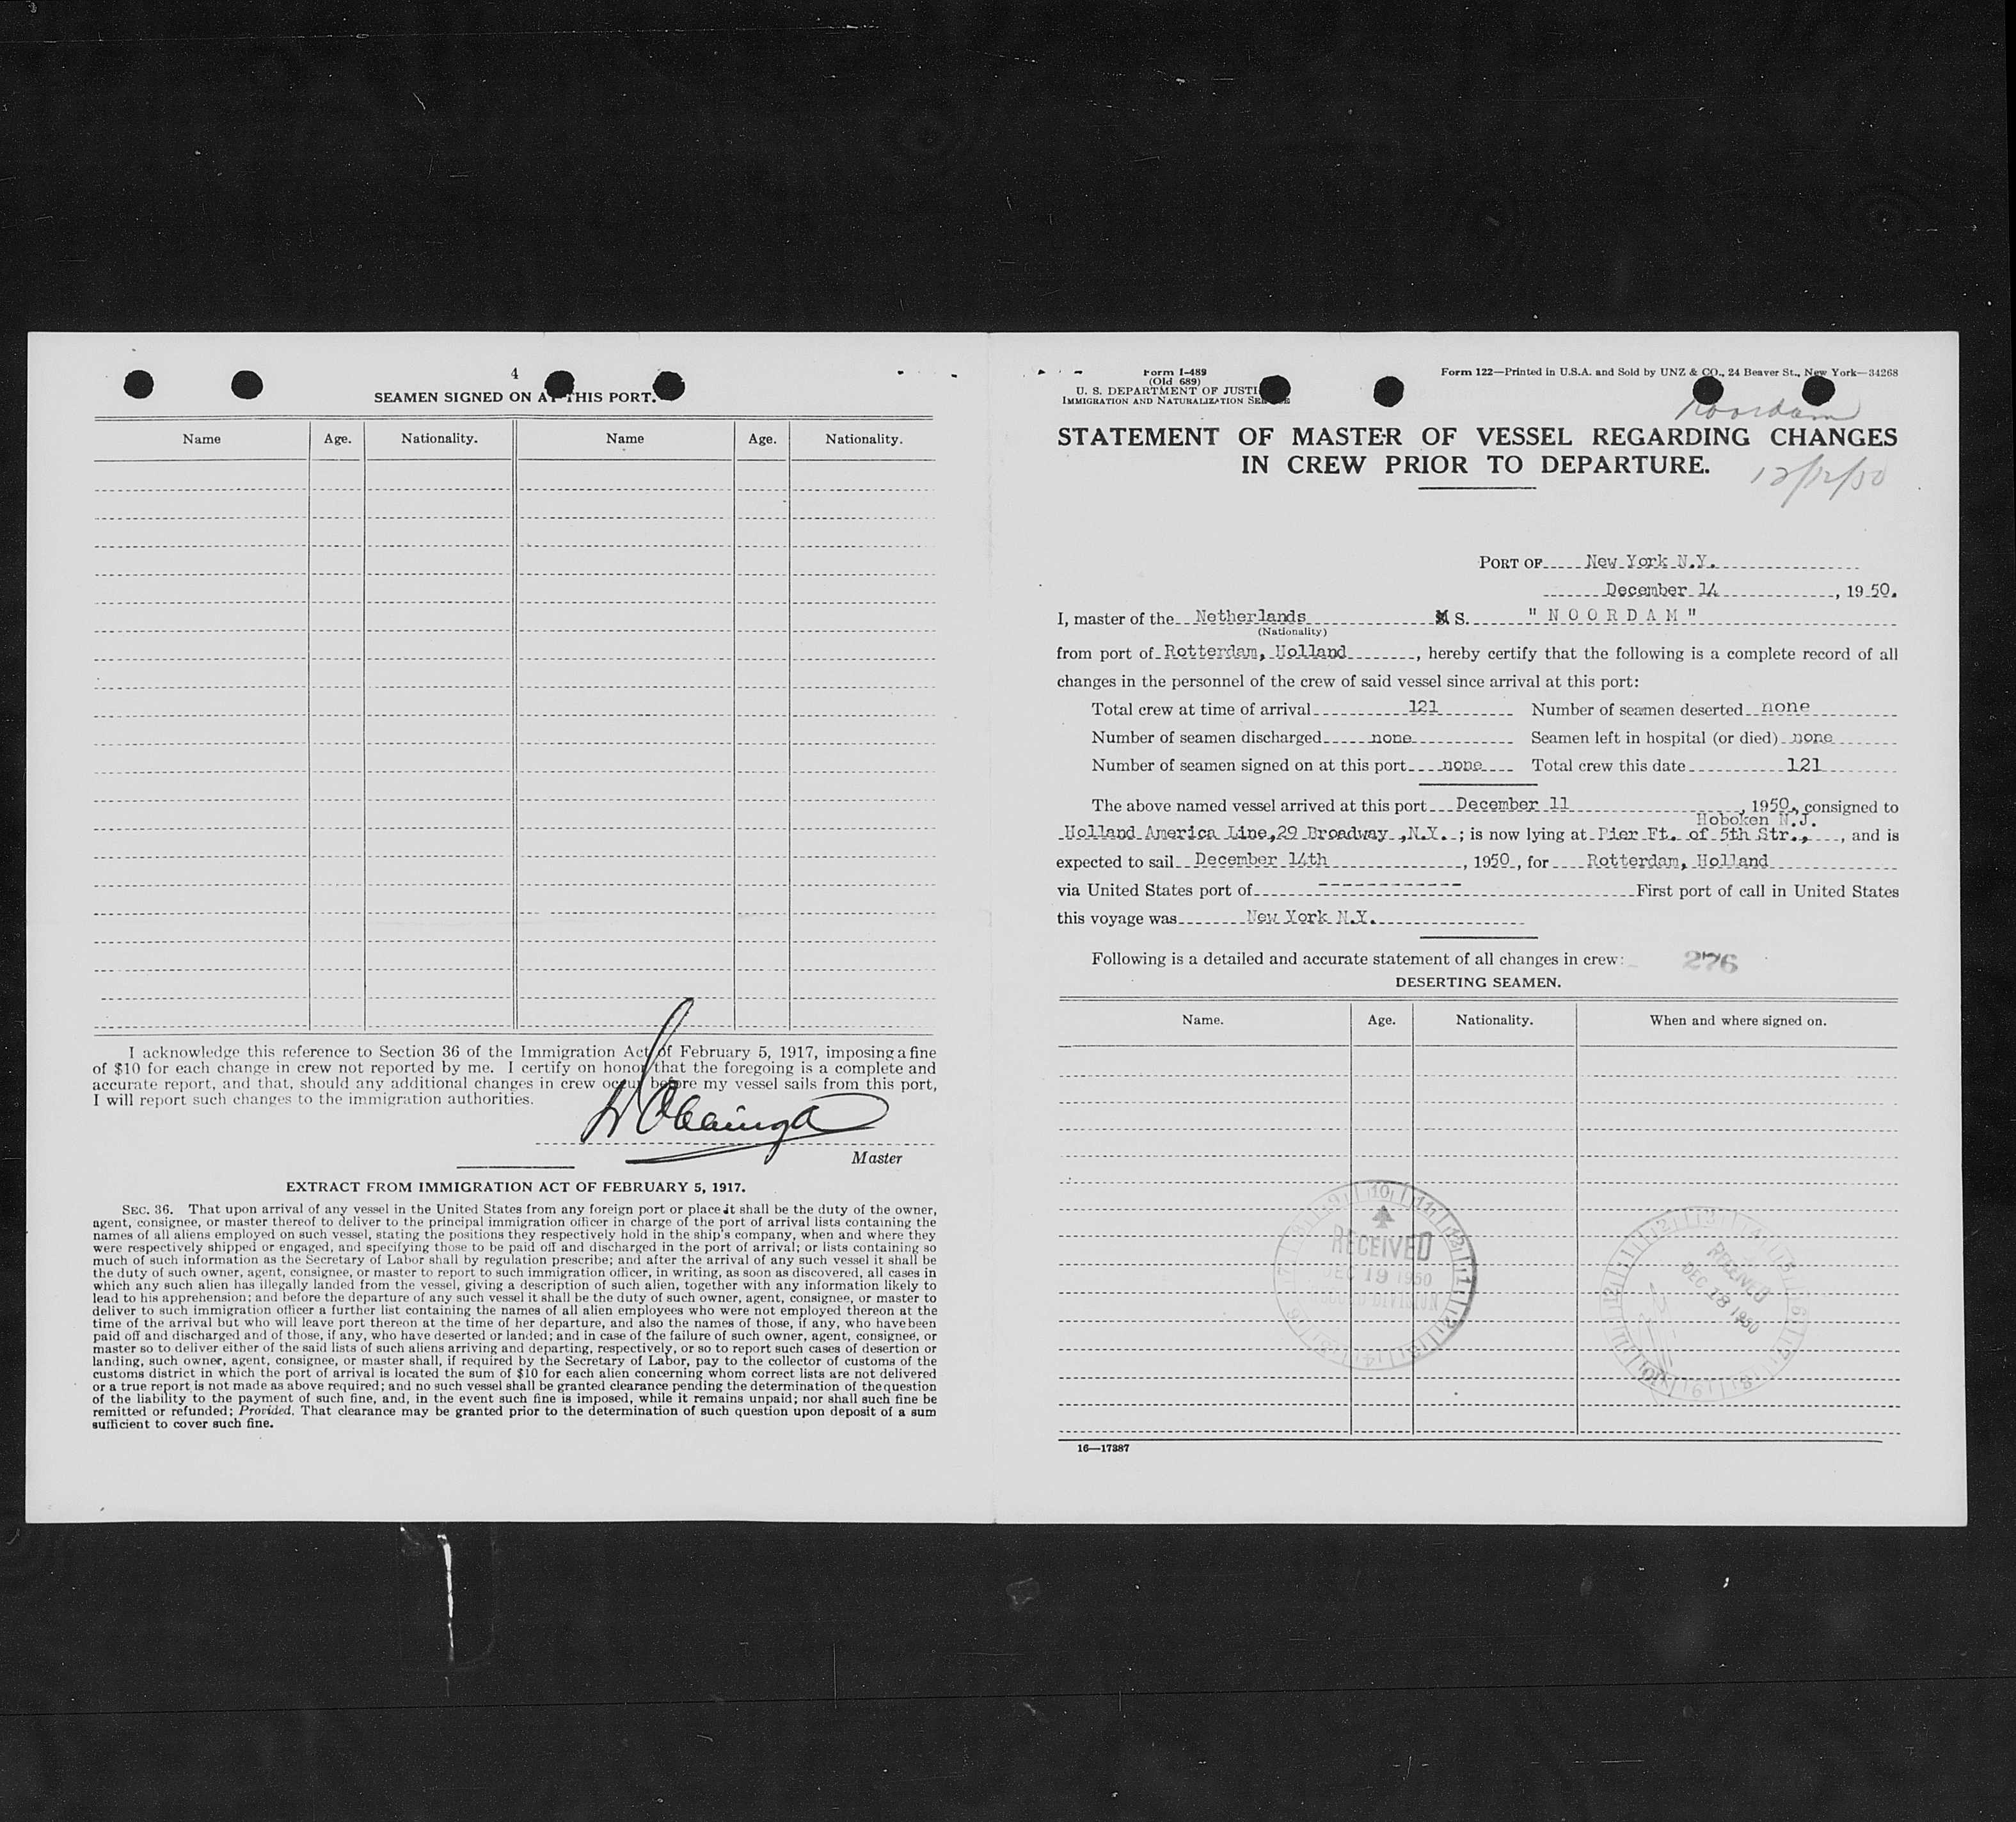 4
SEAMEN SIGNED ON AT THIS PORT.
Name Age. Nationality. Name Age. Nationality.
I acknowledge this reference to Section 36 of the Immigration Act of February 5, 1917, imposing a fine
of $10 for each change in crew not reported by me. I certify on honor that the foregoing is a complete and
accurate report, and that, should any additional changes in crew occur before my vessel sails from this port,
I will report such changes to the immigration authorities.
Master
EXTRACT FROM IMMIGRATION ACT OF FEBRUARY 5, 1917.
SEC. 36. That upon arrival of any vessel in the United States from any foreign port or place it shall be the duty of the owner,
agent, consignee, or master thereof to deliver to the principal immigration officer in charge of the port of arrival lists containing the
names of all aliens employed on such vessel, stating the positions they respectively hold in the ship's company, when and where they
were respectively shipped or engaged, and specifying those to be paid off and discharged in the port of arrival; or lists containing so
much of such information as the Secretary of Labor shall by regulation prescribe; and after the arrival of any such vessel it shall be
the duty of such owner, agent, consignee, or master to report to such immigration officer, in writing, as soon as discovered, all cases in
which any such alien has illegally landed from the vessel, giving a description of such alien, together with any information likely to
lead to his apprehension; and before the departure of any such vessel it shall be the duty of such owner, agent, consignee, or master to
deliver to such immigration officer a further list containing the names of all alien employees who were not employed thereon at the
time of the arrival but who will leave port thereon at the time of her departure, and also the names of those, if any, who have been
paid off and discharged and of those, if any, who have deserted or landed; and in case of the failure of such owner, agent, consignee, or
master so to deliver either of the said lists of such aliens arriving and departing, respectively, or so to report such cases of desertion or
landing, such owner, agent, consignee, or master shall, if required by the Secretary of Labor, pay to the collector of customs of the
customs district in which the port of arrival is located the sum of $10 for each alien concerning whom correct lists are not delivered
or a true report is not made as above required; and no such vessel shall be granted clearance pending the determination of the question
of the liability to the payment of such fine, and, in the event such fine is imposed, while it remains unpaid; nor shall such fine be
remitted or refunded; Provided, That clearance may be granted prior to the determination of such question upon deposit of a sum
sufficient to cover such fine.
Form I-489
(Old 689)
U. S. DEPARTMENT OF JUSTI
IMMIGRATION AND NATURALIZATION SE
Form 122—Printed in U.S.A. and Sold by UNZ & CO., 24 Beaver St., New York—34268
Noordam
STATEMENT OF MASTER OF VESSEL REGARDING CHANGES
IN CREW PRIOR TO DEPARTURE.
12/12/50
PORT OF New York N.Y.
December 14, 1950.
I, master of the Netherlands M S. "NOORDAM"
(Nationality)
from port of Rotterdam, Holland, hereby certify that the following is a complete record of all
changes in the personnel of the crew of said vessel since arrival at this port:
Total crew at time of arrival 121 Number of seamen deserted none
Number of seamen discharged none Seamen left in hospital (or died) none
Number of seamen signed on at this port none Total crew this date 121
The above named vessel arrived at this port December 11, 1950, consigned to
Hoboken N.J.
Holland America Line,29 Broadway ,N.Y. ; is now lying at Pier Ft. of 5th Str., , and is
expected to sail December 14th, 1950, for Rotterdam, Holland
via United States port of ------------- First port of call in United States
this voyage was New York N.Y.
Following is a detailed and accurate statement of all changes in crew: 276
DESERTING SEAMEN.
Name. Age. Nationality. When and where signed on.
RECEIVED
DEC 19 1950
SECOND DIVISION
RECEIVED
DEC 18 1950
16—17387